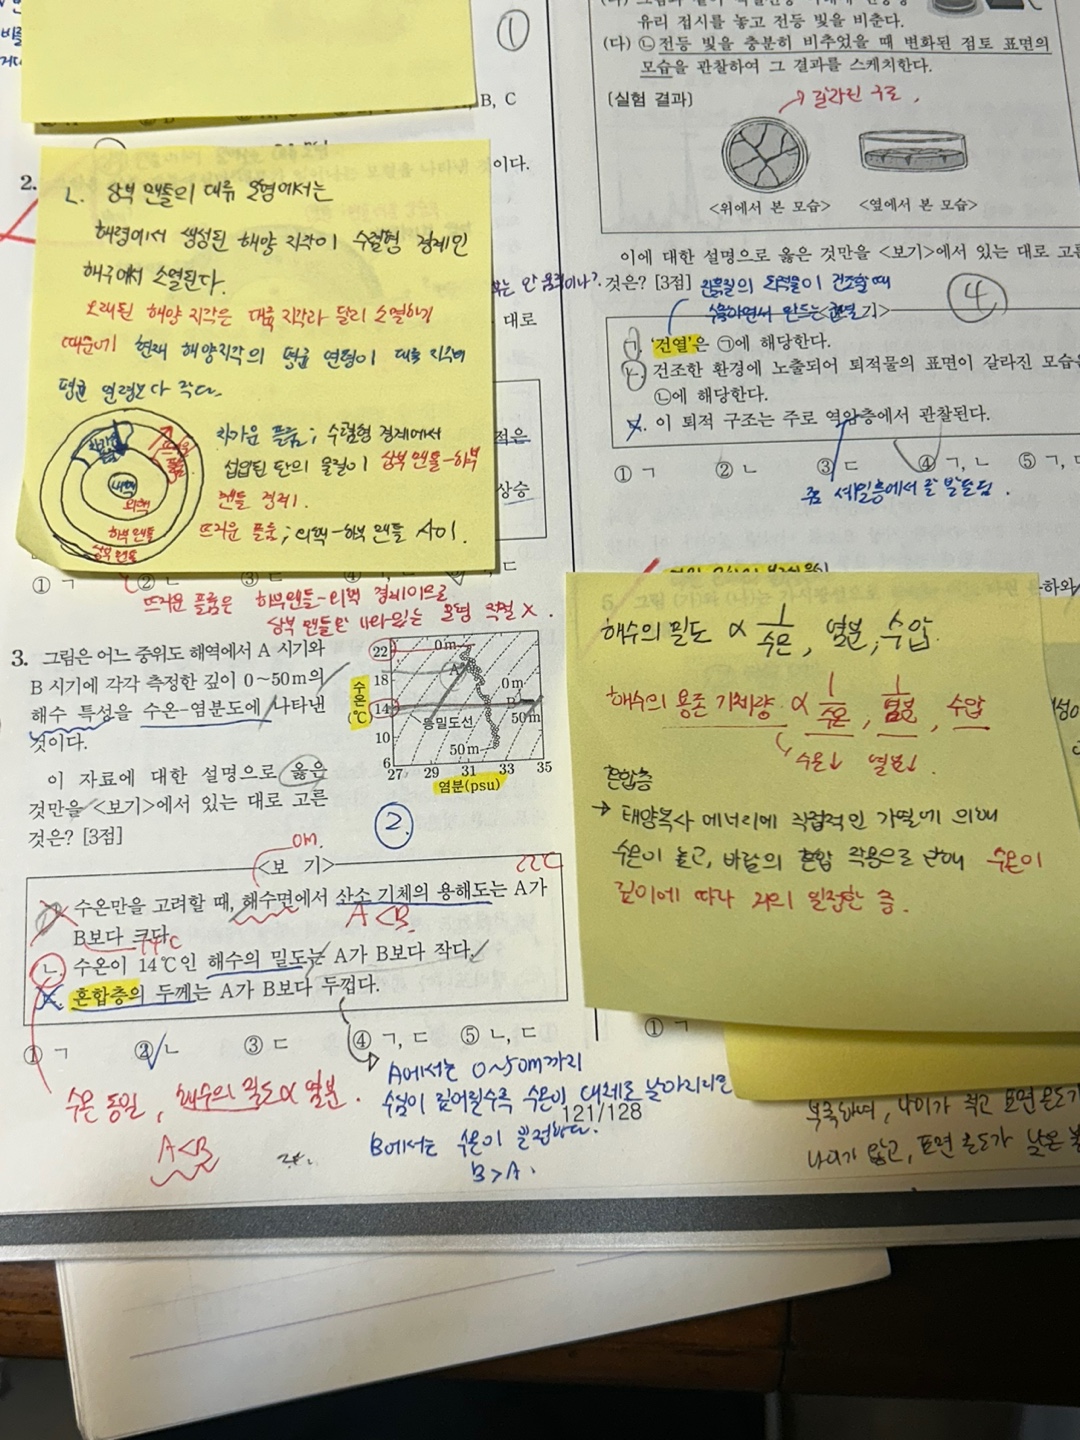 ①
B, C
2.
이다.
ㄴ. 상부 맨틀의 대류 모형에서는
해령에서 생성된 해양 지각이 수렴형 경계인
해구에서 소멸된다.
오래된 해양 지각은 대륙 지각과 달리 소멸하기
때문에 현재 해양지각의 평균 연령이 대륙 지각의
평균 연령보다 작다.
대로
적은
상승
차가운 플룸; 수렴형 경계에서
섭입된 판의 물질이 상부맨틀-하부
맨틀 경계.
뜨거운 플룸; 외핵-하부 맨틀 사이.
내핵
외핵
하부 맨틀
상부 맨틀
① ㄱ ② ㄴ ③ ㄷ
뜨거운 플룸은 하부맨틀-외핵 경계이므로
상부 맨틀만 나타나있는 모형 적절 X.
3. 그림은 어느 중위도 해역에서 A 시기와
B 시기에 각각 측정한 깊이 0~50m의
해수 특성을 수온-염분도에 나타낸
것이다.
이 자료에 대한 설명으로 옳은
것만을 <보기>에서 있는 대로 고른
것은? [3점]
수온(℃)
22
18
14
10
6
0m
A
0m
B
50m
등밀도선
50m
27 29 31 33 35
염분(psu)
②
0m.
<보 기>
22℃
ㄱ. 수온만을 고려할 때, 해수면에서 산소 기체의 용해도는 A가
B보다 크다.
A<B
14℃
ㄴ. 수온이 14℃인 해수의 밀도는 A가 B보다 작다.
ㄷ. 혼합층의 두께는 A가 B보다 두껍다.
① ㄱ ② ㄴ ③ ㄷ ④ ㄱ, ㄷ ⑤ ㄴ, ㄷ
수온 동일, 해수의 밀도 ∝ 염분.
A<B
A에서는 0~50m까지
수심이 깊어질수록 수온이 대체로 낮아지지만
B에서는 수온이 일정하다.
B>A.
121/128
유리 접시를 놓고 전등 빛을 비춘다.
(다) ㉡전등 빛을 충분히 비추었을 때 변화된 점토 표면의
모습을 관찰하여 그 결과를 스케치한다.
[실험 결과]
→ 갈라진 구조.
<위에서 본 모습>
<옆에서 본 모습>
이에 대한 설명으로 옳은 것만을 <보기>에서 있는 대로 고른
것은? [3점]
④
ㄱ. '건열'은 ㉠에 해당한다.
ㄴ. 건조한 환경에 노출되어 퇴적물의 표면이 갈라진 모습은
㉡에 해당한다.
ㄷ. 이 퇴적 구조는 주로 역암층에서 관찰된다.
① ㄱ ② ㄴ ③ ㄷ ④ ㄱ, ㄴ ⑤ ㄱ,
주로 셰일층에서 잘 발견됨.
해수의 밀도 ∝ 1/수온, 염분, 수압
해수의 용존 기체량 ∝ 1/수온, 1/염분, 수압
↳ 수온↓ 염분↓.
혼합층
→ 태양복사 에너지에 직접적인 가열에 의해
수온이 높고, 바람의 혼합 작용으로 인해 수온이
깊이에 따라 거의 일정한 층.
① ㄱ
나이가 적고 표면온도가
나이가 많고, 표면 온도가 낮은